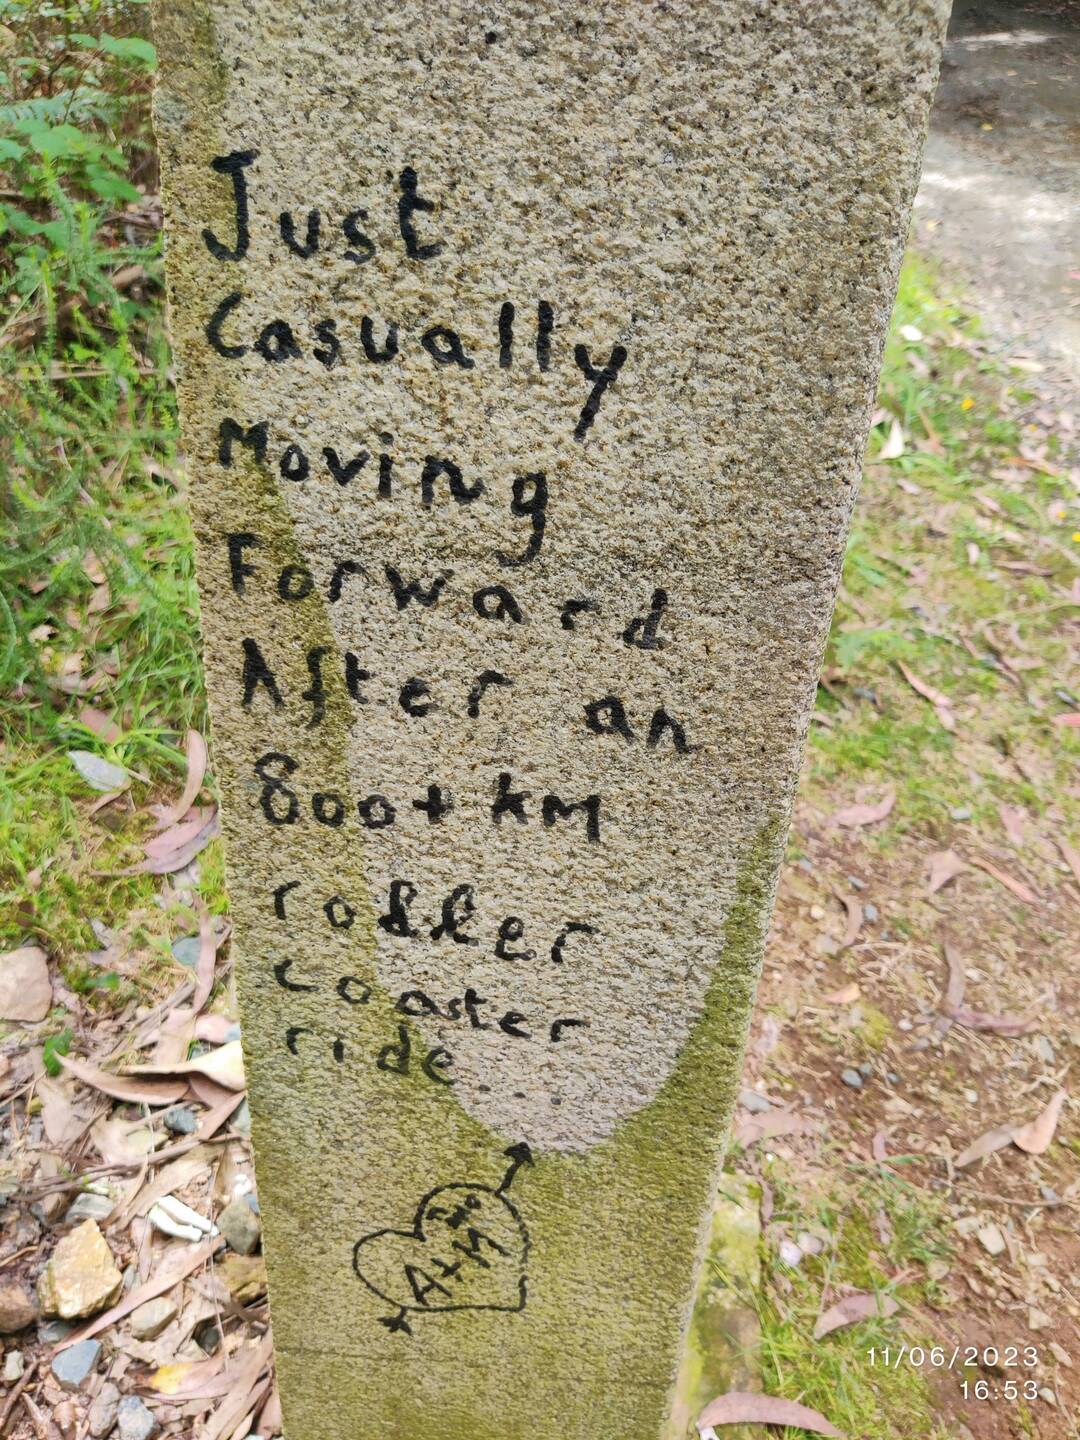 Just
Casually
Moving
Forward
After an
800+ km
roller
coaster
ride...
A+M
11/06/2023
16:53